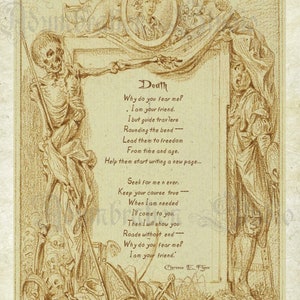 Death
Why do you fear me?
I am your friend.
I but guide trav'lers
Rounding the bend —
Lead them to freedom
From time and age.
Help them start writing a new page...
Seek for me n ever.
Keep your course true —
When I am needed
I'll come to you.
Then I will show you
Roads without end —
Why do you fear me?
I am your friend.
E.